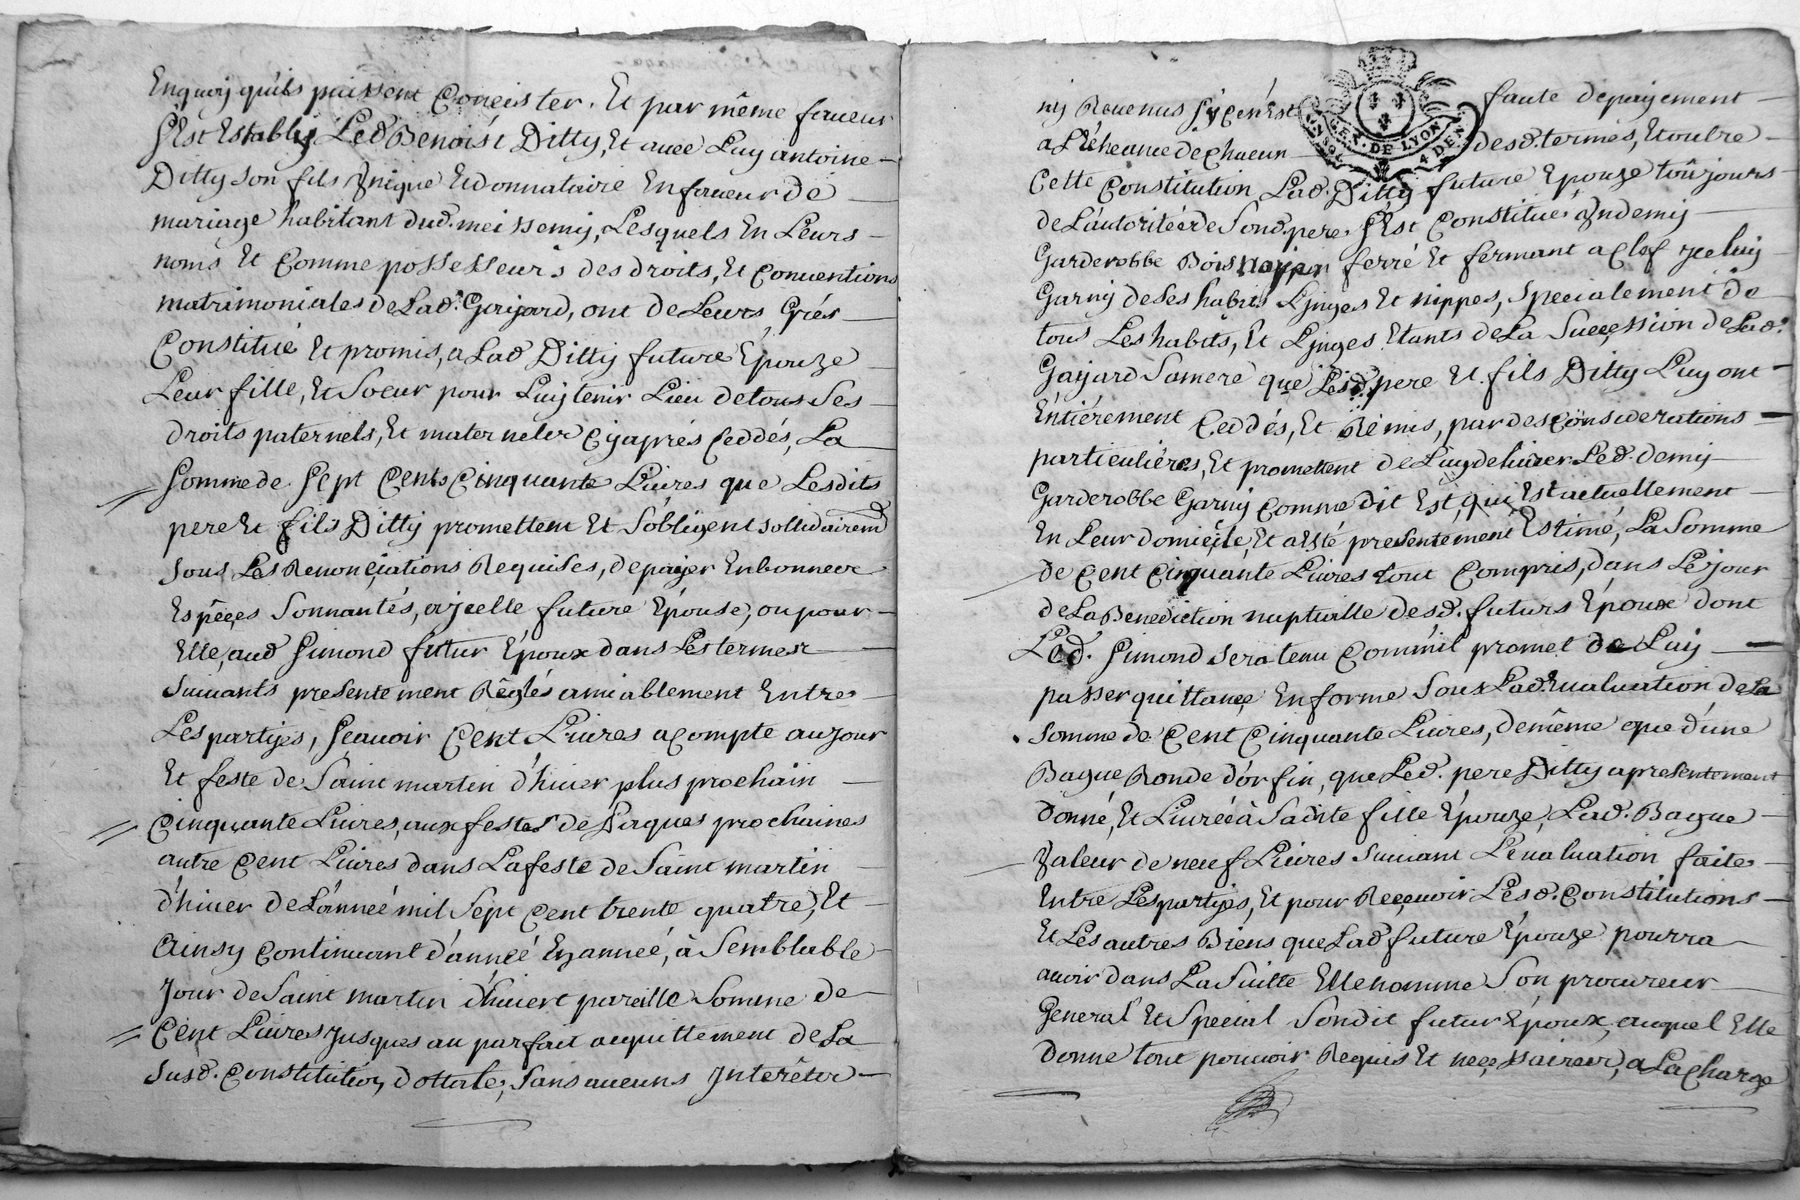 Enquoy qu'ils puissent Consister. Et par même faveur
S'Est Estably Led Benoist Ditty, Et avec Luy antoine
Ditty son fils Unique Et donnataire En faveur de
mariage habitant dud. meissemy, Lesquels En Leurs
noms Et Comme possesseurs des droits, Et Conventions
matrimoniales de Lad. Gayard, ont de Leurs Grés
Constitué Et promis, a Lad Ditty future Epouze
Leur fille, Et Soeur pour Luy tenir Lieu de tous Ses
droits paternels, Et maternels Cy aprés Ceddés, La
Somme de Sept Cents Cinquante Livres que Lesdits
pere Et fils Ditty promettent Et S'obligent sollidairemt
sous Les Renonçiations Requises, de payer En bonnes
Espéçes Sonnantés, a ycelle future Epouse, ou pour
Elle, aud Simond futur Epoux dans Les termes
suivants presentement Réglés amiablement Entre
Les partyes, Scavoir Cent Livres a Compte au Jour
Et feste de Saint martin d'hiver plus prochain
Cinquante Livres, aux festes de Paques prochaines
autre Cent Livres dans La feste de Saint martin
d'hiver de L'année mil Sept Cent trente quatre, Et
Ainsy Continuant d'année En année, à Semblable
Jour de Saint martin d'hivert pareille Somme de
Cent Livres Jusques au parfait acquittement de La
Susd. Constitution dottale, Sans aucuns Interêts
ny Revenus Sy Cen'Est faute de payement
a L'Eheance de Chacun desd. termes, Et outre
GEN. DE LYON
4 DEN.
Cette Constitution Lad. Ditty future Epouze toûjours
de L'autoritée de Sond. pere, S'Est Constitué Un demy
Garderobbe Bois Noyer ferré Et fermant a Clef yceluy
Garny de Ses habits Linges Et nippes, Specialement de
tous Les habits, Et Linges Etants de La Succession de Lad.
Gayard Sa mere que Lesd. pere Et fils Ditty Luy ont
Entiérement Ceddés, Et Rémis, par des Considerations
particuliéres, Et promettent de Luy delivrer Led. demy
Garderobbe Garny Comme dit Est, qui Est actuellement
En Leur domicile, Et a Esté presentement Estimé, La Somme
de Cent Cinquante Livres tout Compris, dans Le jour
de La Benediction nuptialle desd. futurs Epoux dont
Led. Simond Sera tenu Comm'il promet de Luy
passer quittance En forme Sous Lad. Evaluation de La
Somme de Cent Cinquante Livres, de même que d'une
Bague Ronde d'or fin, que Led. pere Ditty a presentement
donné, Et Livrée à Sadite fille Epouze, Lad. Bague
Valeur de neuf Livres Suivant L'evaluation faite
Entre Les partyes, Et pour Reçevoir Lesd. Constitutions
Et Les autres Biens que Lad future Epouze pourra
avoir dans La Suitte Elle nomme Son procureur
General Et Special Sondit futur Epoux, auquel Elle
donne tout pouvoir Requis Et neçessaires, a La Charge